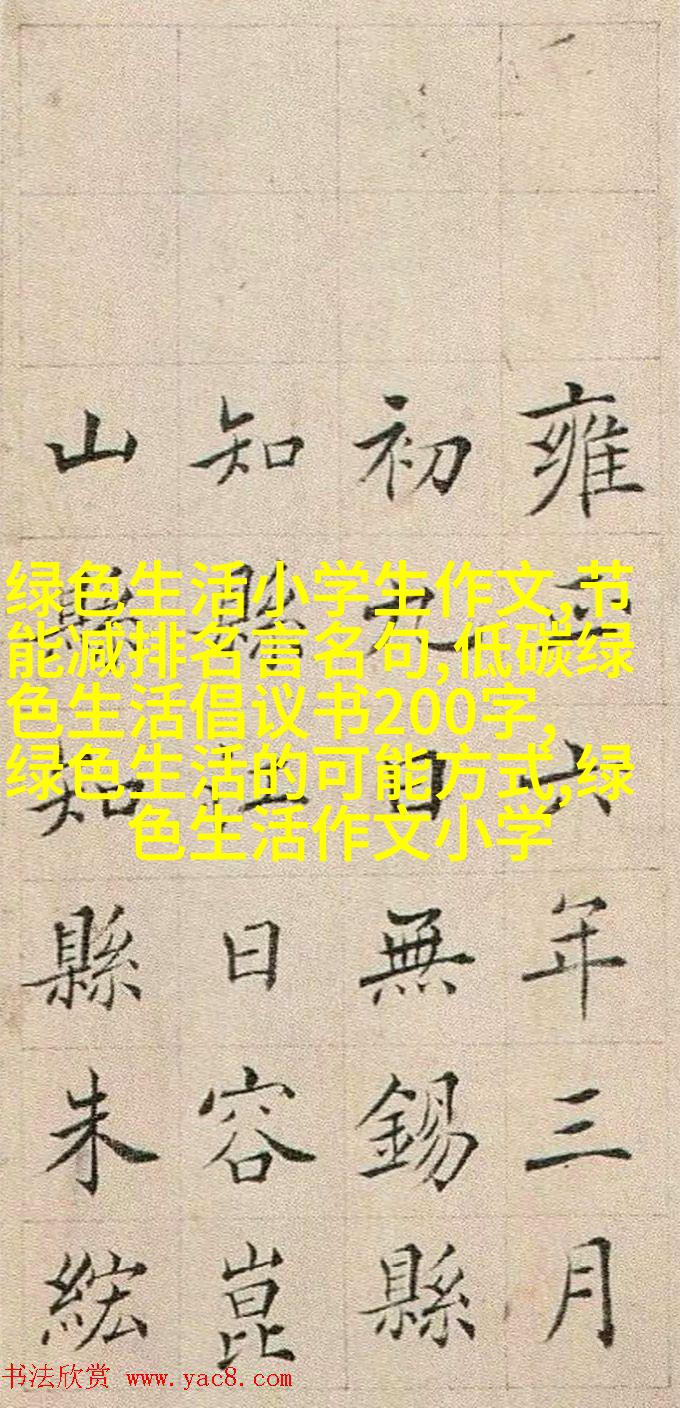 雍正六年三月
初九日無錫縣
知縣江日容崑
山縣知縣朱綋
绿色生活小学生作文,节
能减排名言名句,低碳绿
色生活倡议书200字,
绿色生活的可能方式,绿
色生活作文小学
书法欣赏 www.yac8.com